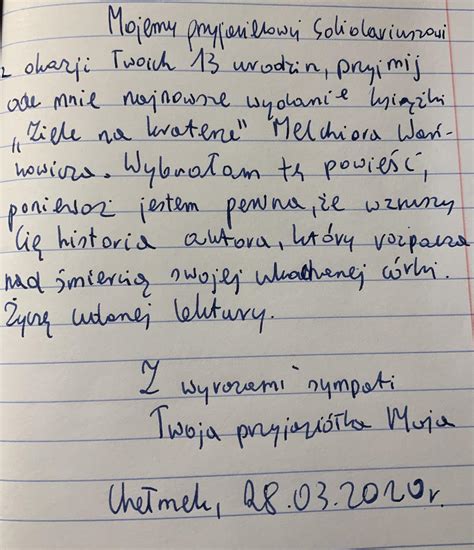 Mojemu przyjacielowi Solidariuszowi
z okazji Twoich 13 urodzin, przyjmij
ode mnie najnowsze wydanie książki
„Ziele na kraterze" Melchiora Wań-
kowicza. Wybrałam tę powieść,
ponieważ jestem pewna, że wzruszy
Cię historia autora, który rozpacza
nad śmiercią swojej ukochanej córki.
Życzę udanej lektury.
Z wyrazami sympati
Twoja przyjaciółka Maja
Chełmek, 28.03.2020r.